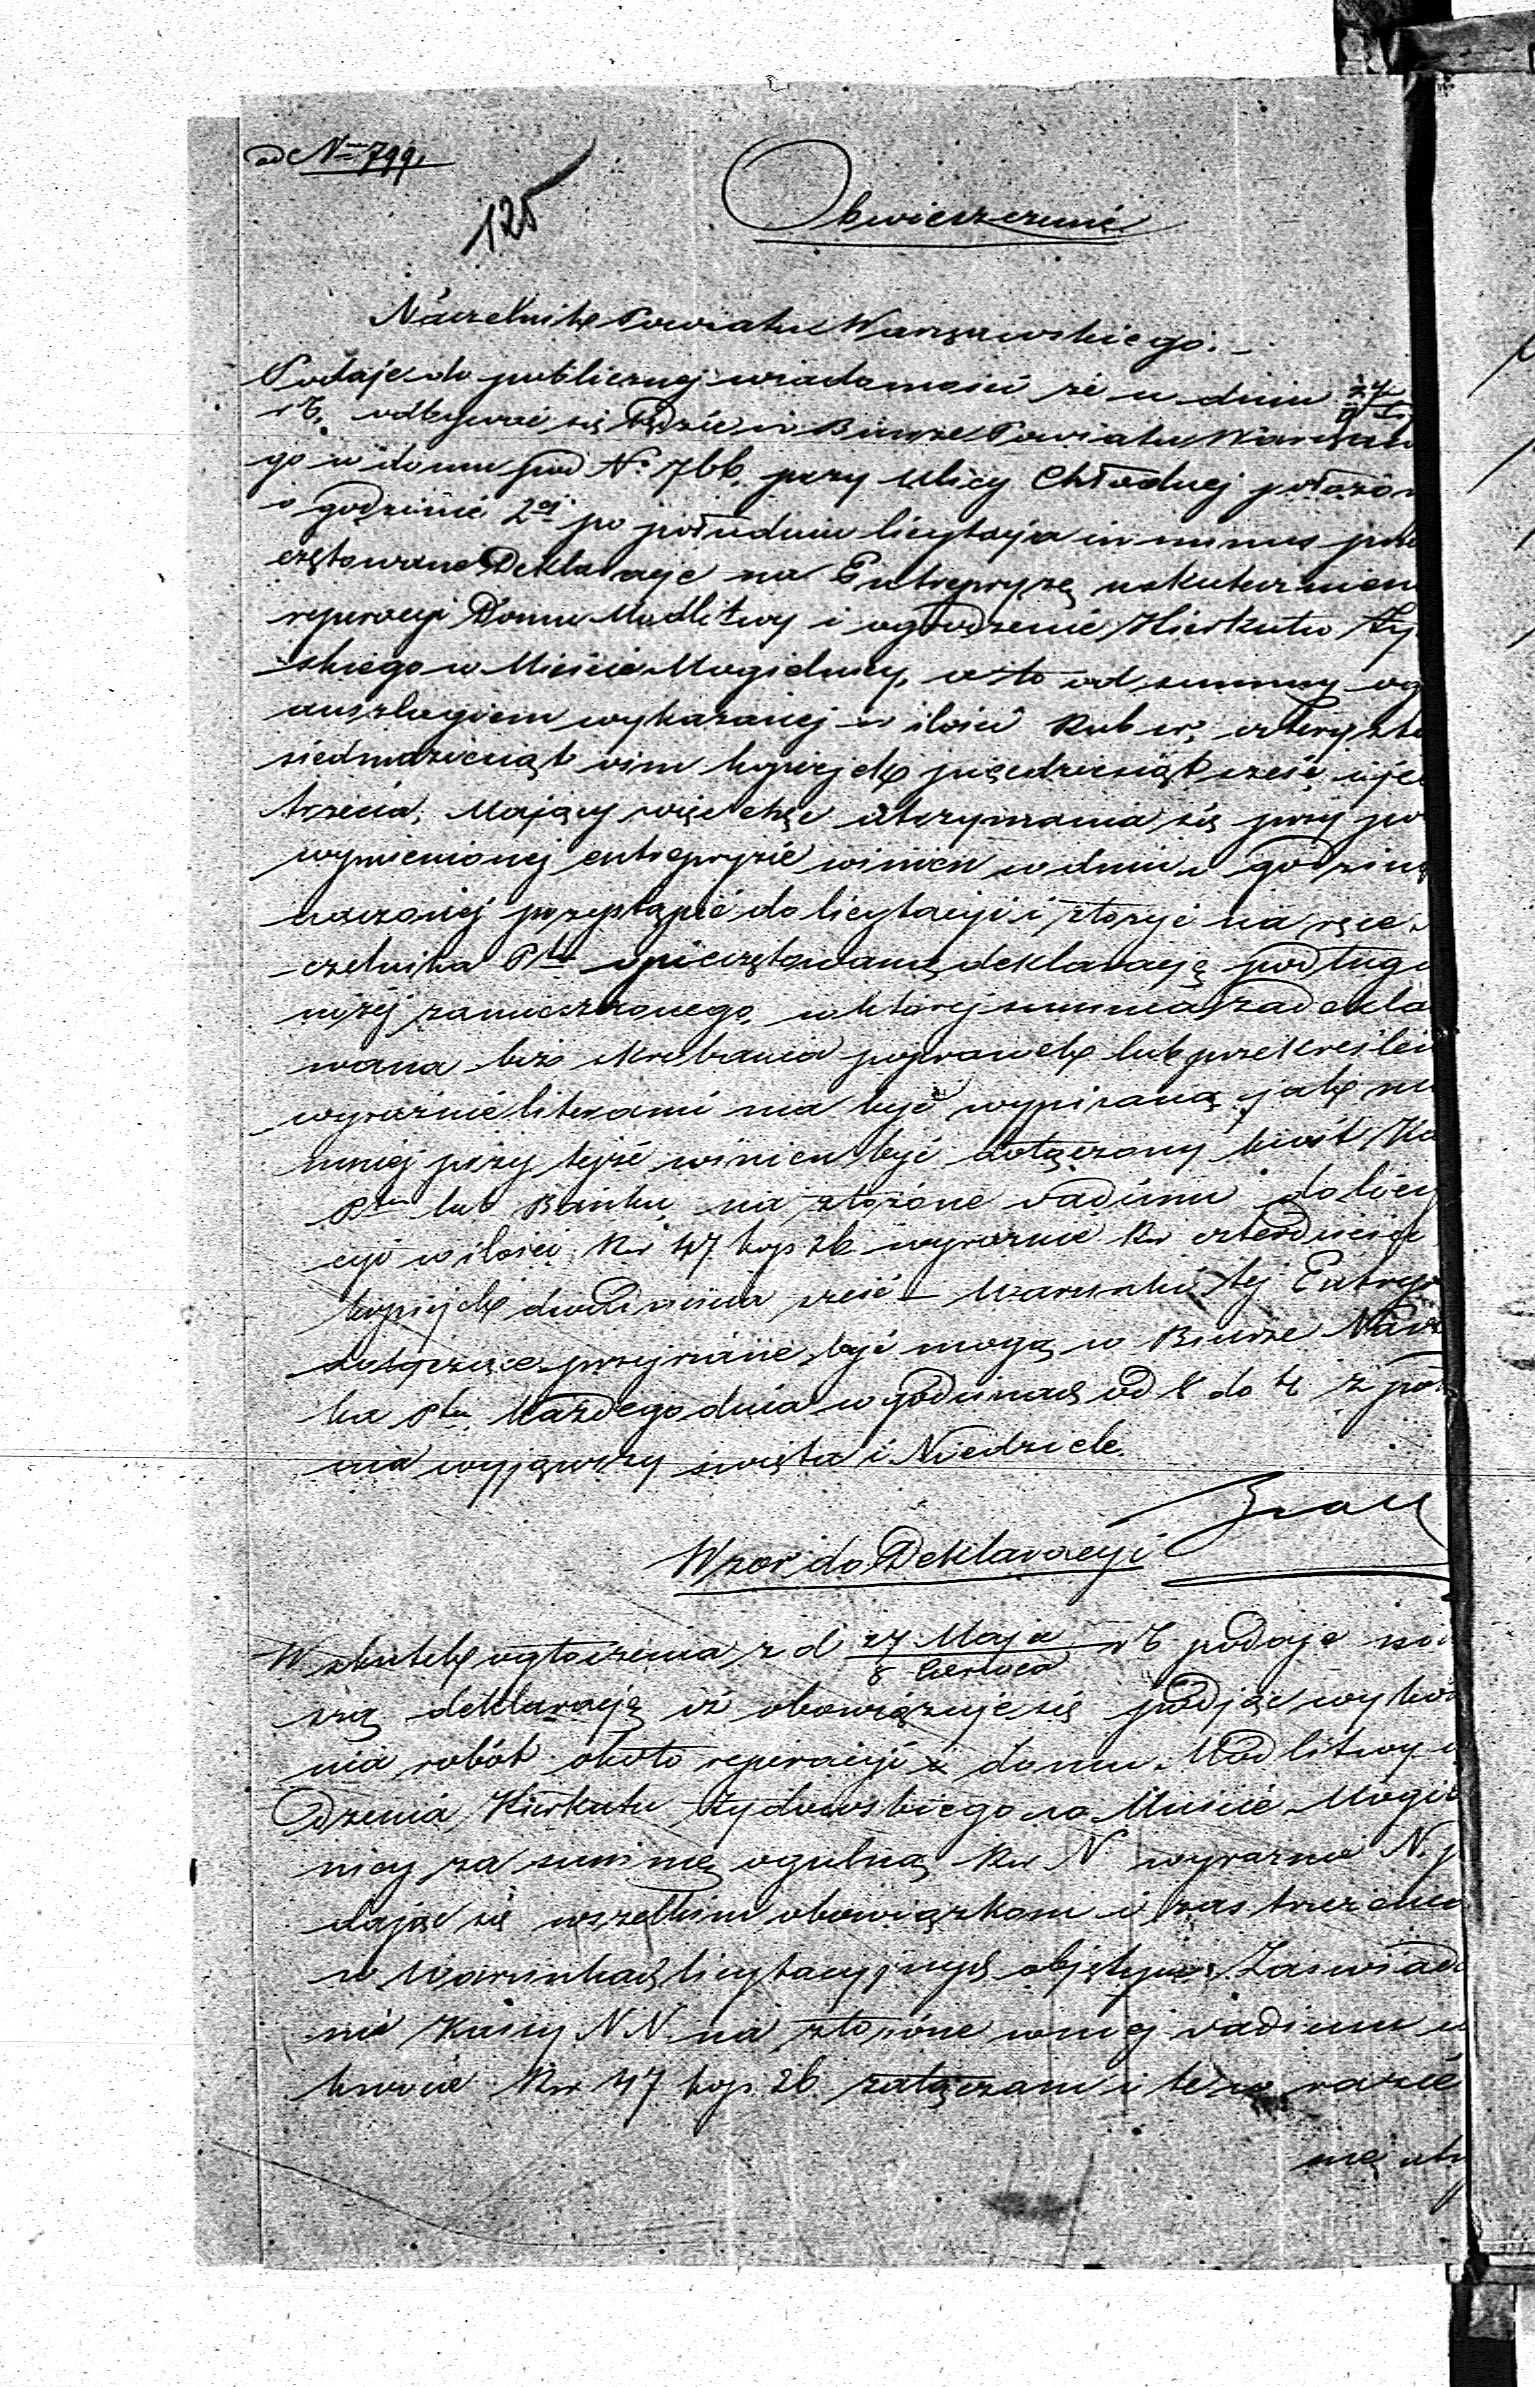 ad Nro 799.
125
Obwieszczenie
Naczelnik Powiatu Warszawskiego.
Podaje do publicznej wiadomości że w dniu 27
r b. odbywać się będzie w Biurze Powiatu Warszaw
go w domu pod No 766. przy Ulicy Chłodnej położon
o godzinie 2ej po południu licytacja in minus prze
czętowane Deklaracje na Entrepryzę uskutecznien
reperacyi Domu Modlitwy i ogrodzenie Kierkutu Ży
skiego w Mieście Mogielnicy, a to od summy og
anszlagiem wykazanej w ilości Rub sr. czterysta
siedmdziesiąt kopiejek pięćdziesiąt sześć i je
trzecia. Mający więc chęć utrzymania się przy po
wymienionej entrepryzie winien w dniu i godzinie
naczonej przystąpić do licytacyi i złożyć na ręce
czelnika Ptu opieczętowaną deklaracją podług
niżej zamieszczonego, w której summa zadekla
wana bez skrobania poprawek lub przekreśleń
wyraźnie literami ma być wypisaną, jak nie
mniej przy tejże winien być dołączony kwit Ka
Ptu lub Banku na złożone vadium do licy
cyi w ilości Rsr 47 kop 26 wyraźnie Rsr czterdzieści
kopiejek dwadzieścia sześć – Warunki tej Entrep
dotyczące przejrzane być mogą w Biurze Nacz
ka Ptu każdego dnia w godzinach od 8 do 4 z poł
nia wyjąwszy święta i Niedziele.
Wzor do Deklaracyi
W skutek ogłoszenia z d 27 Maja / 8 Czerwca r b podaję
szą deklaracją iż obowiązuję się podjąć wyko
nia robót około reperacyi domu Modlitwy
dzenia Kierkutu Żydowskiego w Mieście Mogie
nicy za summę ogulną Rsr N wyraźnie N. p
dając się wszelkim obowiązkom i zastrzeżeniom
w Warunkach licytacyjnych objętym. Zaświad
nie Kassy N N. na złożone w niej vadium w
kwocie Rsr 47 kop. 26. załączam i te w razie